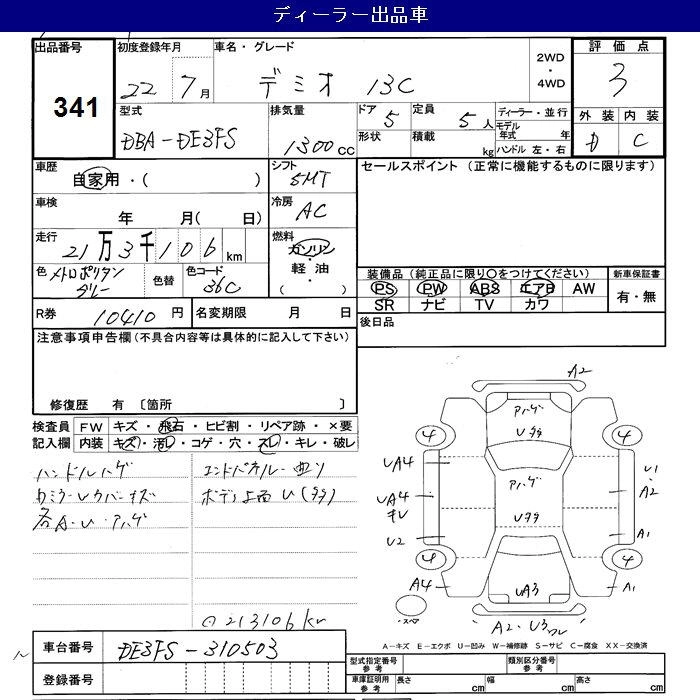 ディーラー出品車
出品番号 初度登録年月 車名・グレード 2WD・4WD 評価点
341 22年 7月 デミオ 13C 3
型式 排気量 ドア 5 定員 5人 ディーラー・並行 外装 内装
DBA-DE3FS 1300cc 形状 積載 kg モデル年式 年 D C
ハンドル 左・右
車歴 自家用・( ) シフト 5MT セールスポイント (正常に機能するものに限ります)
車検 年 月( 日) 冷房 AC
走行 21万3千106km 燃料 ガソリン・軽油・( )
色 メトロポリタングレー 色替 色コード 36C
装備品(純正品に限り〇をつけてください) 新車保証書
PS PW ABS エアB AW 有・無
SR ナビ TV カワ
R券 10410円 名変期限 月 日 後日品
注意事項申告欄(不具合内容等は具体的に記入して下さい)
修復歴 有 〔箇所 〕
検査員 FW キズ・飛石・ヒビ割・リペア跡・×要
記入欄 内装 キズ・汚レ・コゲ・穴・スレ・キレ・破レ
ハンドルハゲ
各A・U・アハゲ
ボディ上面U(多多)
213106km
A2
アハゲ
U多多
4 4
UA4 U1
アハゲ A2
UA4
キレ U多多
U2 A1
4 4
A4 UA3 A1
A2・U3
A-キズ E-エクボ U-凹み W-補修跡 S-サビ C-腐食 XX-交換済
車台番号 DE3FS-310503
登録番号
型式指定番号 参考 類別区分番号 参考
車庫証明用 参考 長さ cm 幅 cm 高さ cm